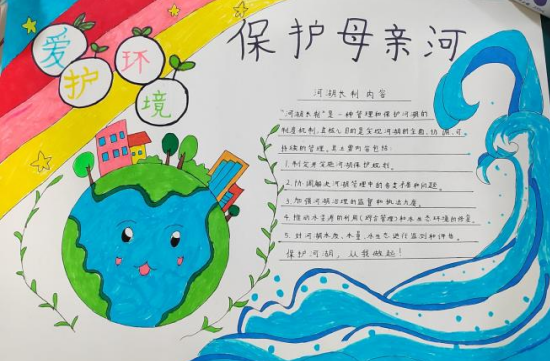 保护母亲河
爱护环境
河湖长制 内容
"河湖长制"是一种管理和保护河湖的
制度机制,其核心目的是实现河湖的全面、协调、可
持续的管理,其主要内容包括:
1.制定并实施河湖保护规划。
2.协调解决河湖管理中的各类矛盾和问题。
3.加强河湖治理的监督和执法力度。
4.推动水资源的利用(综合管理)和水生态环境的修复。
5.对河湖水质、水量、水生态进行监测和评估。
保护河湖,从我做起!